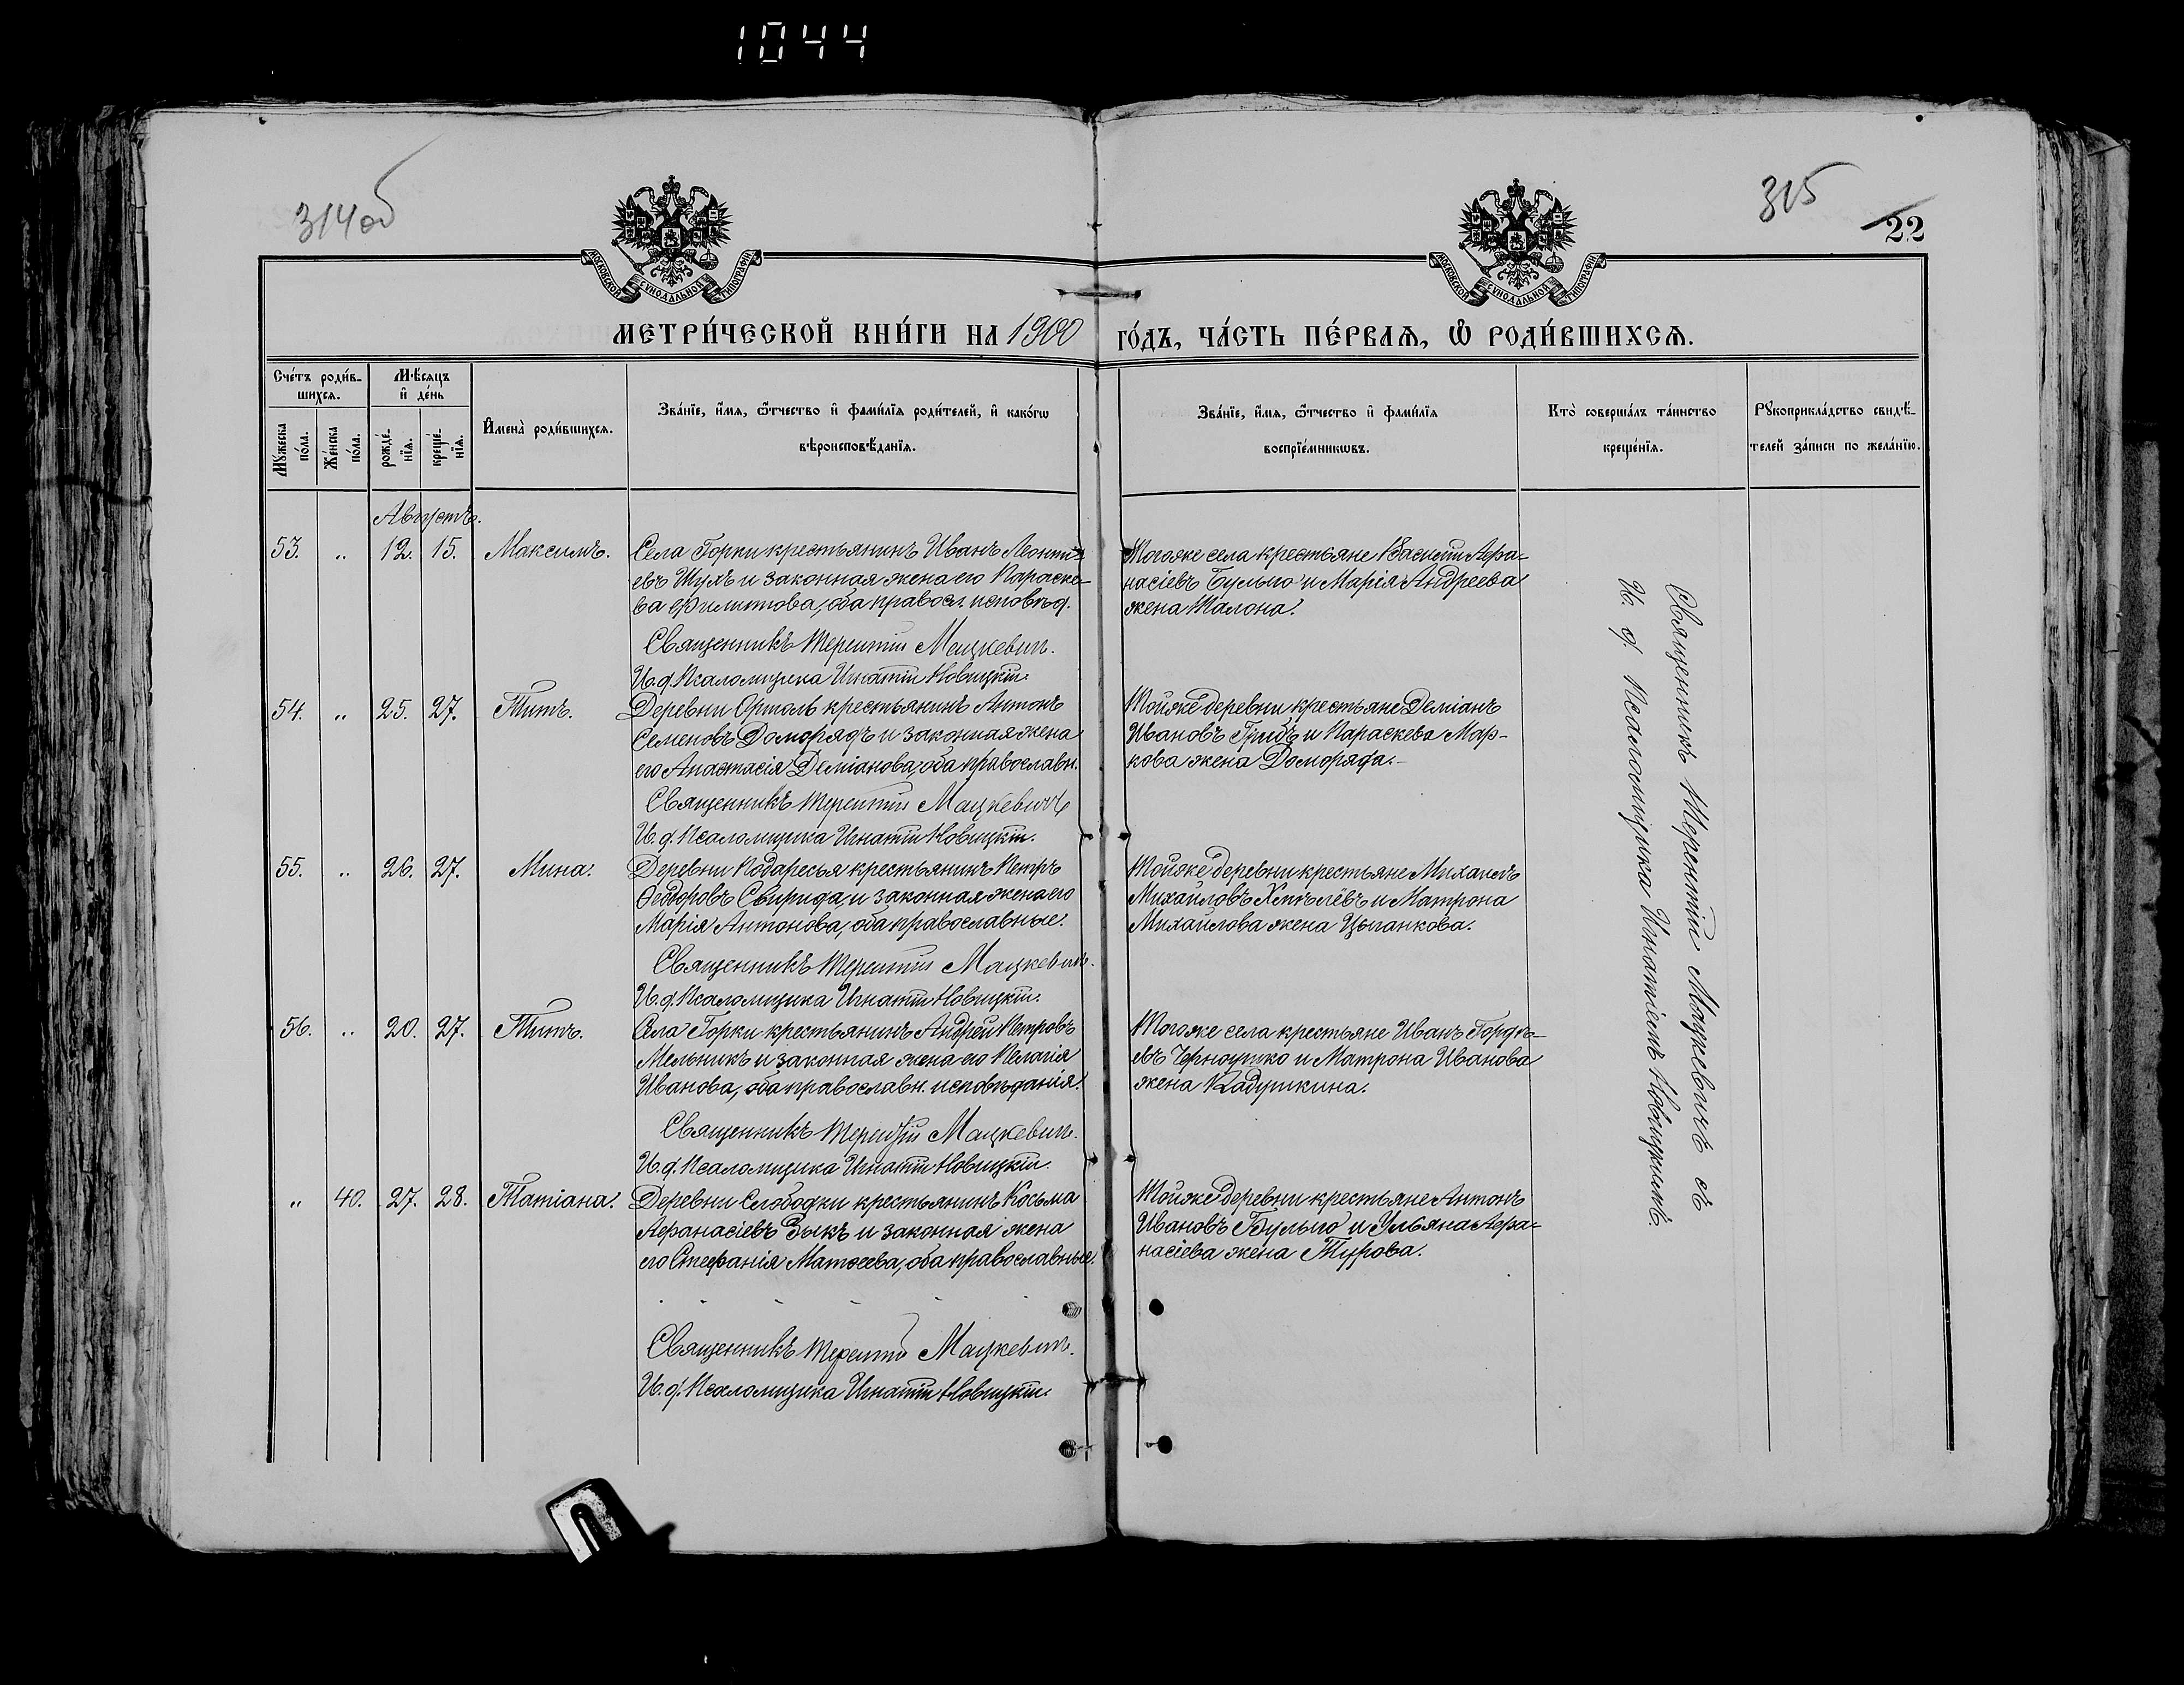 1044
314об
315
22
МОСКОВСКОЙ СѴНОДАЛЬНОЙ ТИПОГРАФІИ
МОСКОВСКОЙ СѴНОДАЛЬНОЙ ТИПОГРАФІИ
МЕТРИ́ЧЕСКОЙ КНИ́ГИ НА 1900 ГО́ДЪ, ЧА́СТЬ ПЕ́РВАѦ, Ѽ РОДИ́ВШИХСѦ.
Сче́тъ роди́в-
шихсѧ.
Мꙋжеска по́ла.
Же́нска по́ла.
Мѣ́сѧцъ и҆ де́нь
рожде́-
нїѧ.
креще́-
нїѧ.
И҆мена̀ роди́вшихсѧ.
Зва́нїе, и҆́мѧ, ѻ҆́тчество и҆ фамилїѧ роди́телей, и҆ како́гѡ
вѣроисповѣ́данїѧ.
Зва́нїе, и҆́мѧ, ѻ҆́тчество и҆ фамилїѧ
воспрїе́мникѡвъ.
Кто̀ соверша́лъ та́инство
креще́нїѧ.
Рꙋкоприкла́дство свидѣ́-
телей за́писи по жела́нїю.
Августъ.
53. „ 12. 15. Максимъ.
Села Горки крестьянинъ Иванъ Леонтi-
евъ Шухъ и законная жена его Параске-
ва Филиппова, оба правосл. исповѣд.
Священникъ Терентій Мацкевич.
И. д. Псаломщика Игнатій Новицкій.
Тогоже села крестьяне Василій Афа-
насіевъ Булыго и Марія Андреева
жена Талона.
54. „ 25. 27. Титъ.
Деревни Ортоль крестьянинъ Антонъ
Семеновъ Доморядъ и законная жена
его Анастасія Деміанова, оба православн.
Священникъ Терентій Мацкевичъ
И. д. Псаломщика Игнатій Новицкій.
Тойже деревни крестьяне Деміанъ
Ивановъ Грибъ и Параскева Мар-
кова жена Доморяда.
55. „ 26. 27. Мина.
Деревни Подаресья крестьянинъ Петръ
Ѳеодоровъ Свирида, и законная жена его
Марія Антонова, оба православные.
Священникъ Терентій Мацкевич.
И. д. Псаломщика Игнатій Новицкій.
Тойже деревни крестьяне Михаилъ
Михайловъ Хмѣлёвъ и Матрона
Михайлова жена Цыганкова.
56. „ 20. 27. Титъ.
Села Горки крестьянинъ Андрей Петровъ
Мельникъ и законная жена его Пелагія
Иванова, оба православн. исповѣданія.
Священникъ Терентій Мацкевич.
И. д. Псаломщика Игнатій Новицкій.
Тогоже села крестьяне Иванъ Гордѣ-
евъ Черноушко и Матрона Иванова
жена Кадушкина.
„ 40. 27. 28. Татіана.
Деревни Слободки крестьянинъ Косьма
Афанасіевъ Зыкъ и законная жена
его Стефанія Матѳеева, оба православные.
Священникъ Терентій Мацкевич.
И. д. Псаломщика Игнатій Новицкій.
Тойже деревни крестьяне Антонъ
Ивановъ Булыго и Ульяна Афа-
насіева жена Турова.
Священникъ Терентій Мацкевичъ съ
И. д. Псаломщика Игнатіемъ Новицкимъ.